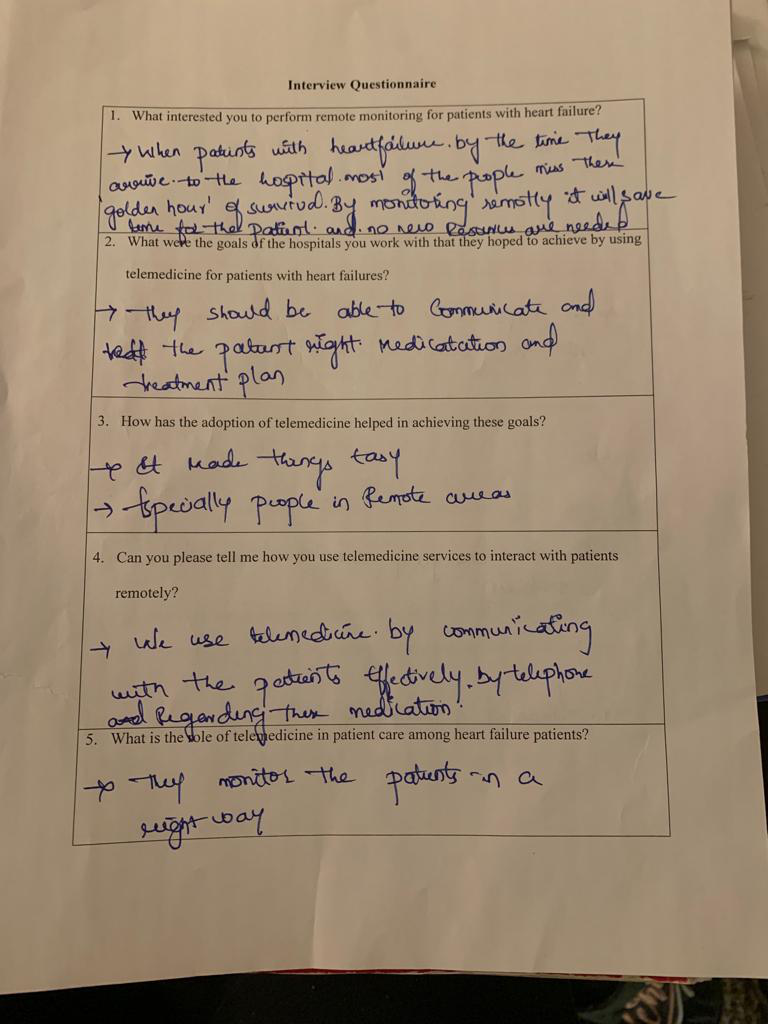 Interview Questionnaire
1. What interested you to perform remote monitoring for patients with heart failure?
→ When patients with heartfailure. by the time They
arrive. to the hospital. most of the people miss there
'golden hour' of survival. By monitoring remotly it will save
time for the Patient. and no new Resources are needed
2. What were the goals of the hospitals you work with that they hoped to achieve by using
telemedicine for patients with heart failures?
→ They should be able to Communicate and
the patient right. Medicatation and
treatment plan
3. How has the adoption of telemedicine helped in achieving these goals?
→ It made things Easy
→ Especially people in Remote areas
4. Can you please tell me how you use telemedicine services to interact with patients
remotely?
→ We use telemedicine. by communicating
with the patients Effectively. by telephone
and Regarding there medication.
5. What is the role of telemedicine in patient care among heart failure patients?
→ They monitor the patients in a
right way